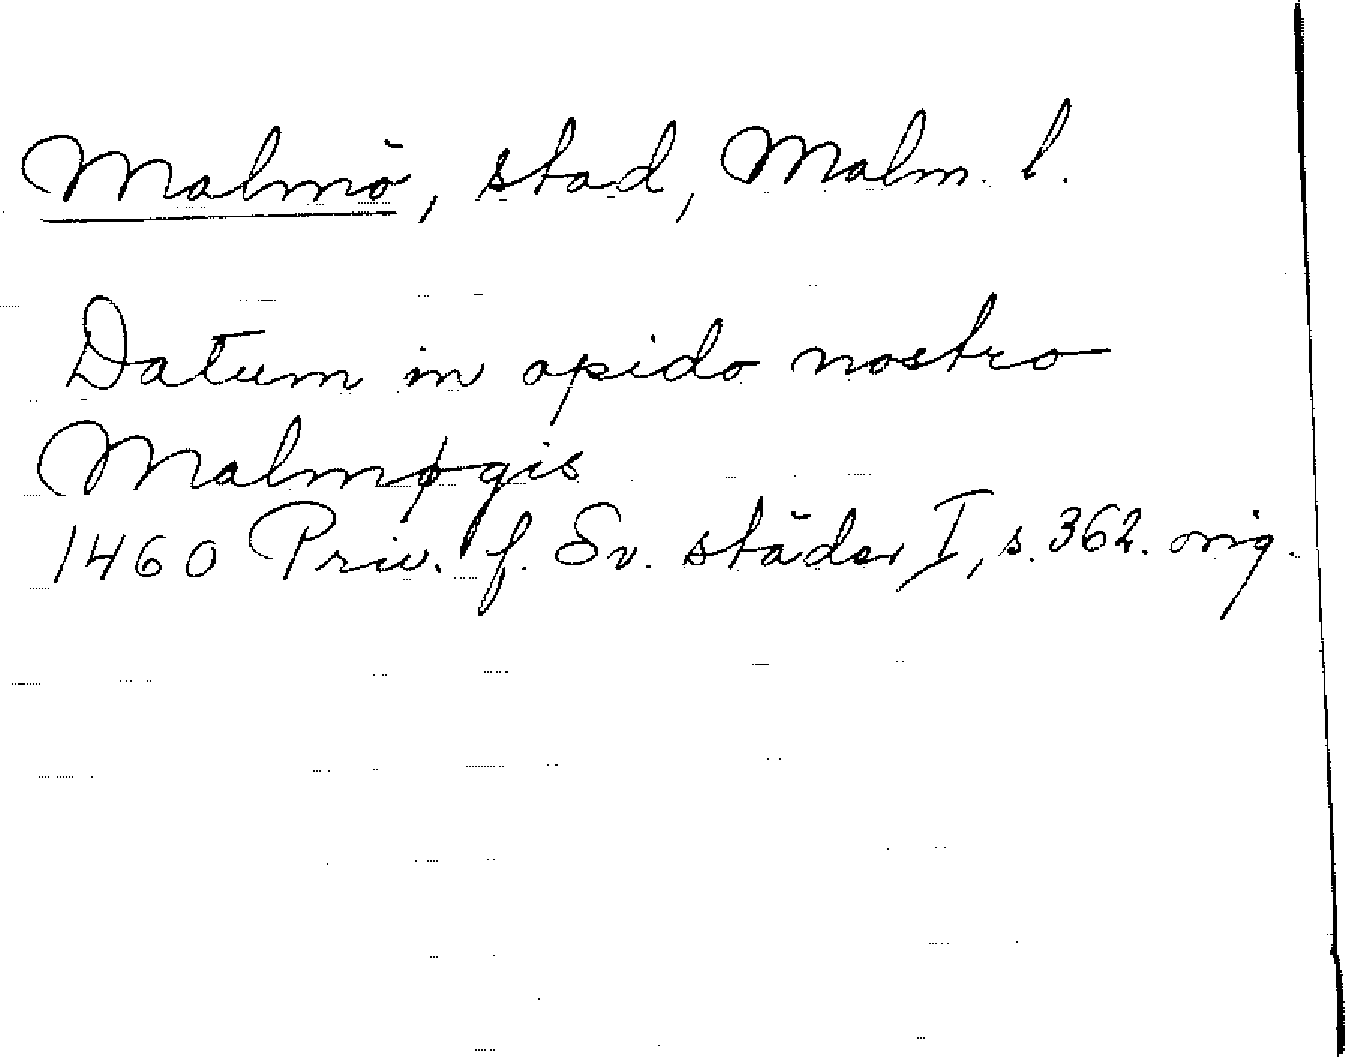 Malmö, stad, Malm. l.
Datum in opido nostro
Malmøgis
1460 Priv. f. Sv. städer I, s. 362. orig.